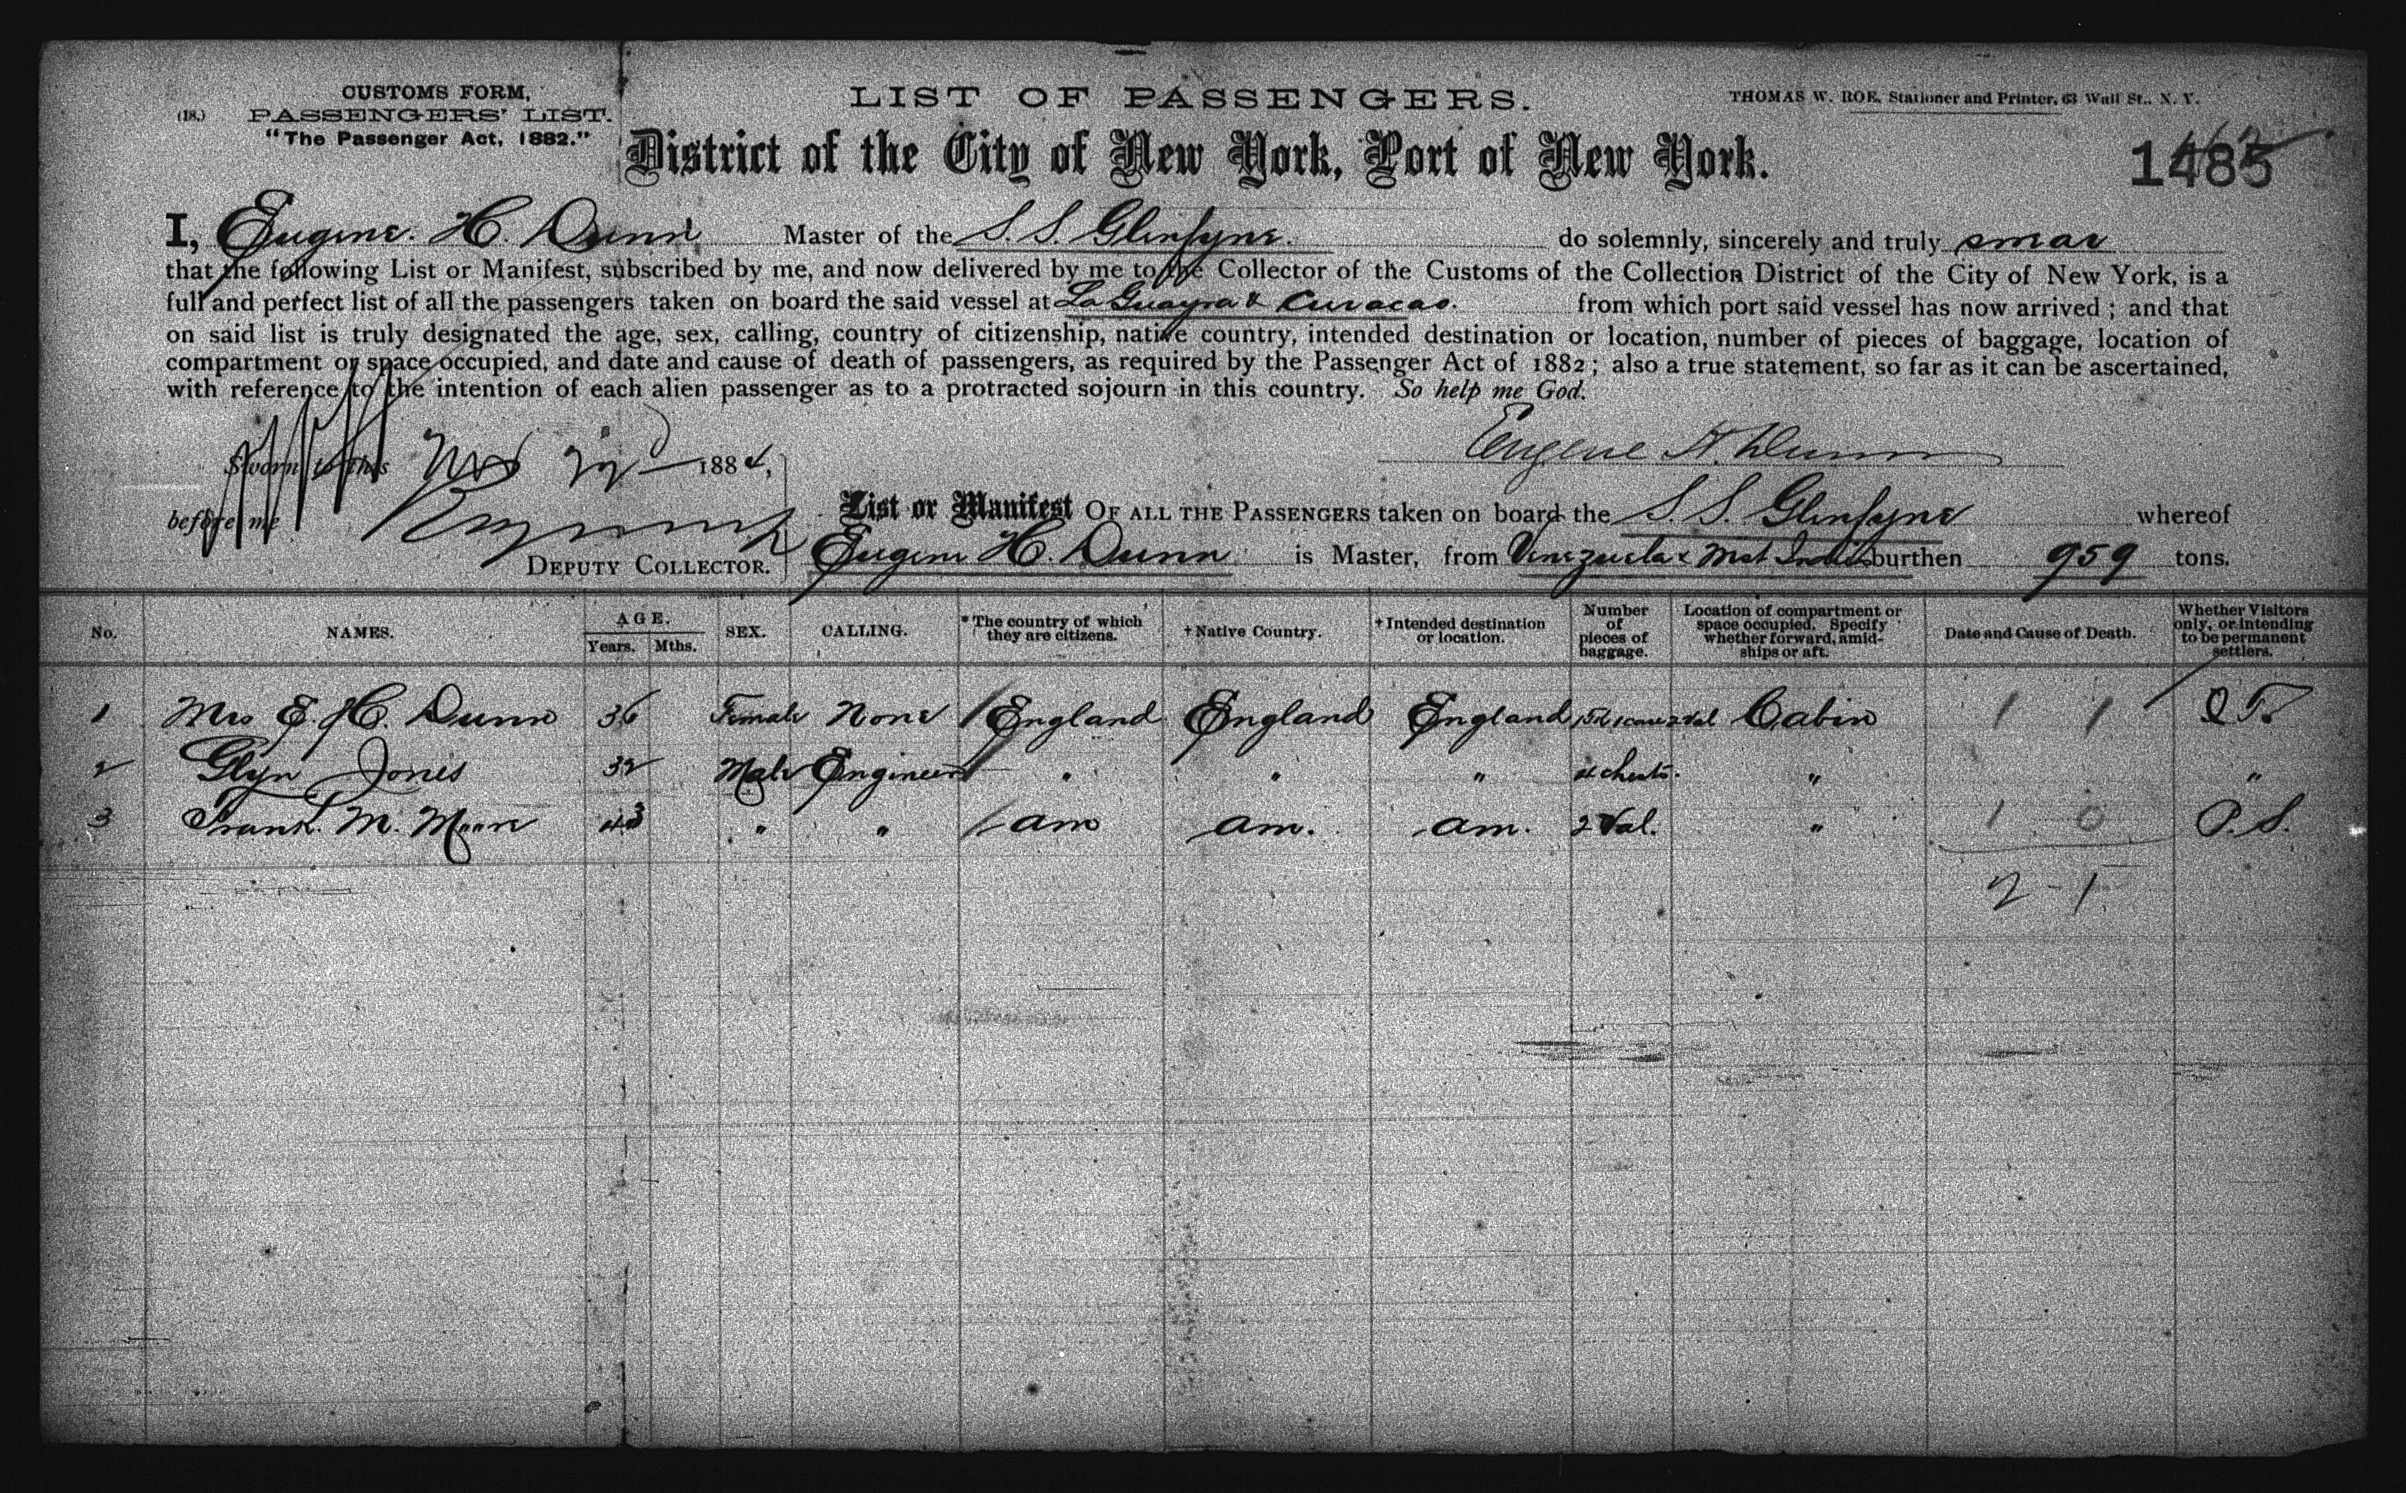 CUSTOMS FORM,
(18.) PASSENGERS' LIST.
"The Passenger Act, 1882."
LIST OF PASSENGERS.
THOMAS W. ROE, Stationer and Printer, 63 Wall St., N. Y.
District of the City of New York, Port of New York.
1485
I, Eugene. H. Dunn Master of the S. S. Glenfyne. do solemnly, sincerely and truly swear
that the following List or Manifest, subscribed by me, and now delivered by me to the Collector of the Customs of the Collection District of the City of New York, is a
full and perfect list of all the passengers taken on board the said vessel at La Guayra & Curacao. from which port said vessel has now arrived ; and that
on said list is truly designated the age, sex, calling, country of citizenship, native country, intended destination or location, number of pieces of baggage, location of
compartment or space occupied, and date and cause of death of passengers, as required by the Passenger Act of 1882 ; also a true statement, so far as it can be ascertained,
with reference to the intention of each alien passenger as to a protracted sojourn in this country. So help me God.
Eugene H. Dunn
Sworn to this 1884,
before me
DEPUTY COLLECTOR.
List or Manifest OF ALL THE PASSENGERS taken on board the S. S. Glenfyne whereof
Eugene H. Dunn is Master, from Venezuela & West Indies burthen 959 tons.
No. NAMES. AGE. Years. Mths. SEX. CALLING. * The country of which they are citizens. † Native Country. † Intended destination or location. Number of pieces of baggage. Location of compartment or space occupied. Specify whether forward, amidships or aft. Date and Cause of Death. Whether Visitors only, or intending to be permanent settlers.
1 Mrs E. H. Dunn 36 Female None England England England Cabin 1 1
2 Glyn Jones 32 Male Engineer " " " 4 chests. " "
3 Frank. M. Moore 43 " " Am Am. Am. 2 Val. " 1 0 P. S.
2 - 1